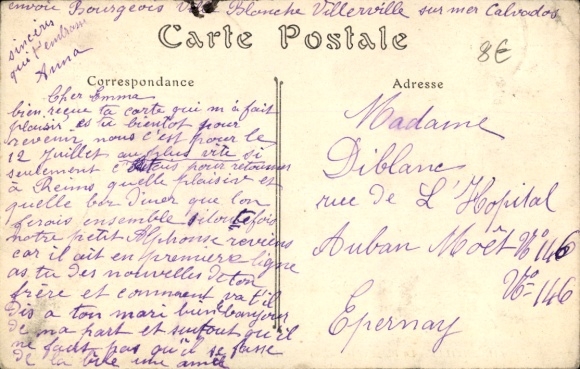 envoi Bourgeois Villa Blanche Villerville sur mer Calvados
sincères
qui
Anna
Carte Postale
8€
Correspondance
Adresse
Cher Emma
bien reçue ta carte qui m'a fait
plaisir es tu bientot pour
revenir nous c'est pour le
12 Juillet au plus vite si
seulement c'étais pour retourner
à Reims quelle plaisir et
quelle bon diner que l'on
ferais ensemble si toutefois
notre petit Alphonse reviens
car il ait en premiere ligne
as tu des nouvelles de ton
frère et comment va t'il
dis a ton mari bien bonjour
de ma part et surtout qu'il
ne faut pas qu'il se fasse
de la bile une amie
Madame
Diblanc
rue de L'Hopital
Auban Moët No 146
No 146
Epernay